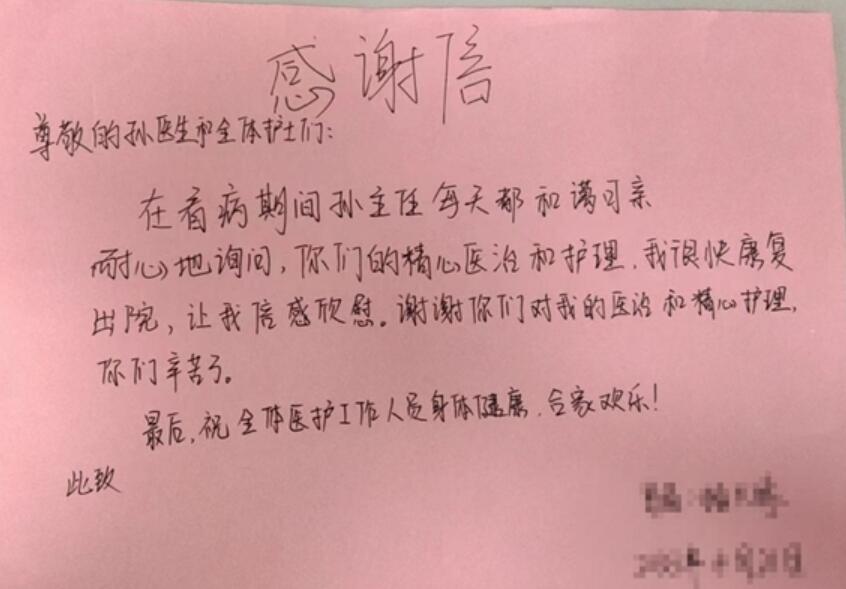 感谢信
尊敬的孙医生和全体护士们：
在看病期间孙主任每天都和蔼可亲
耐心地询问，你们的精心医治和护理，我很快康复
出院，让我倍感欣慰。谢谢你们对我的医治和精心护理，
你们辛苦了。
最后，祝全体医护工作人员身体健康，合家欢乐！
此致